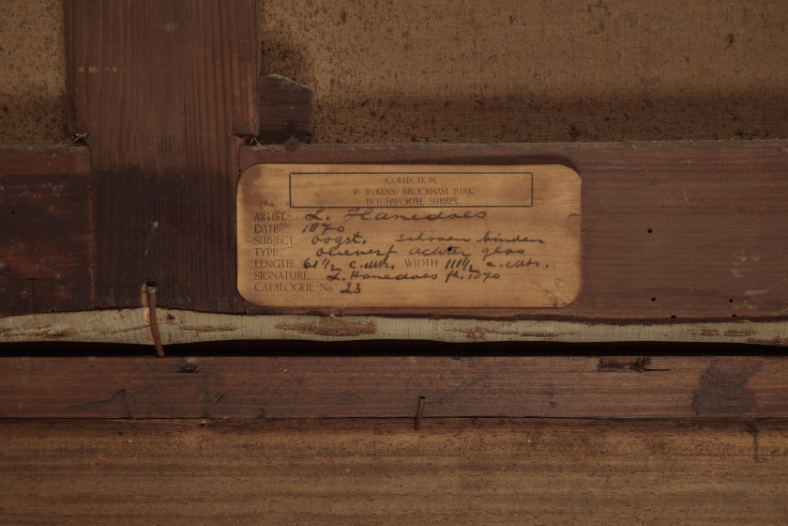 COLLECTION
P. RYKENS, BROCKHAM PARK,
BETCHWORTH, SURREY.
ARTIST: L. Hanedoes
DATE 1870
SUBJECT oogst, schoven binden
TYPE olieverf achter glas
LENGTH 61½ c.mtr. WIDTH 111½ c.mtr.
SIGNATURE L. Hanedoes ft. 1870
CATALOGUE No. 23